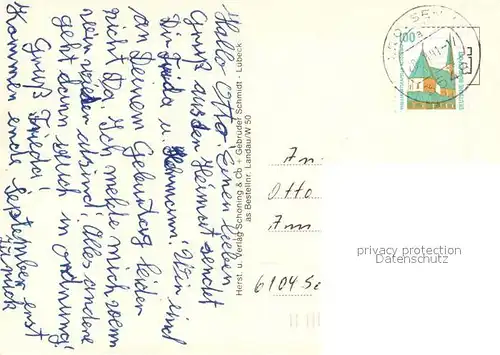 Hallo Otto. Einen lieben
Gruß aus der Heimat sendet
Dir Frieda u. Hermann. Wir sind
an Deinem Geburtag leider
nicht Da. Ich melde mich wenn
wir wieder da sind. Alles andere
geht dann auch in ordnung!
Gruß Frieda!
Kommen ende September erst
zurück
Herst. u. Verlag Schöning & Co + Gebrüder Schmidt - Lübeck
as Bestellnr. Landau/W 50
100
An
Otto
Am
6104 Se
privacy protection
Datenschutz